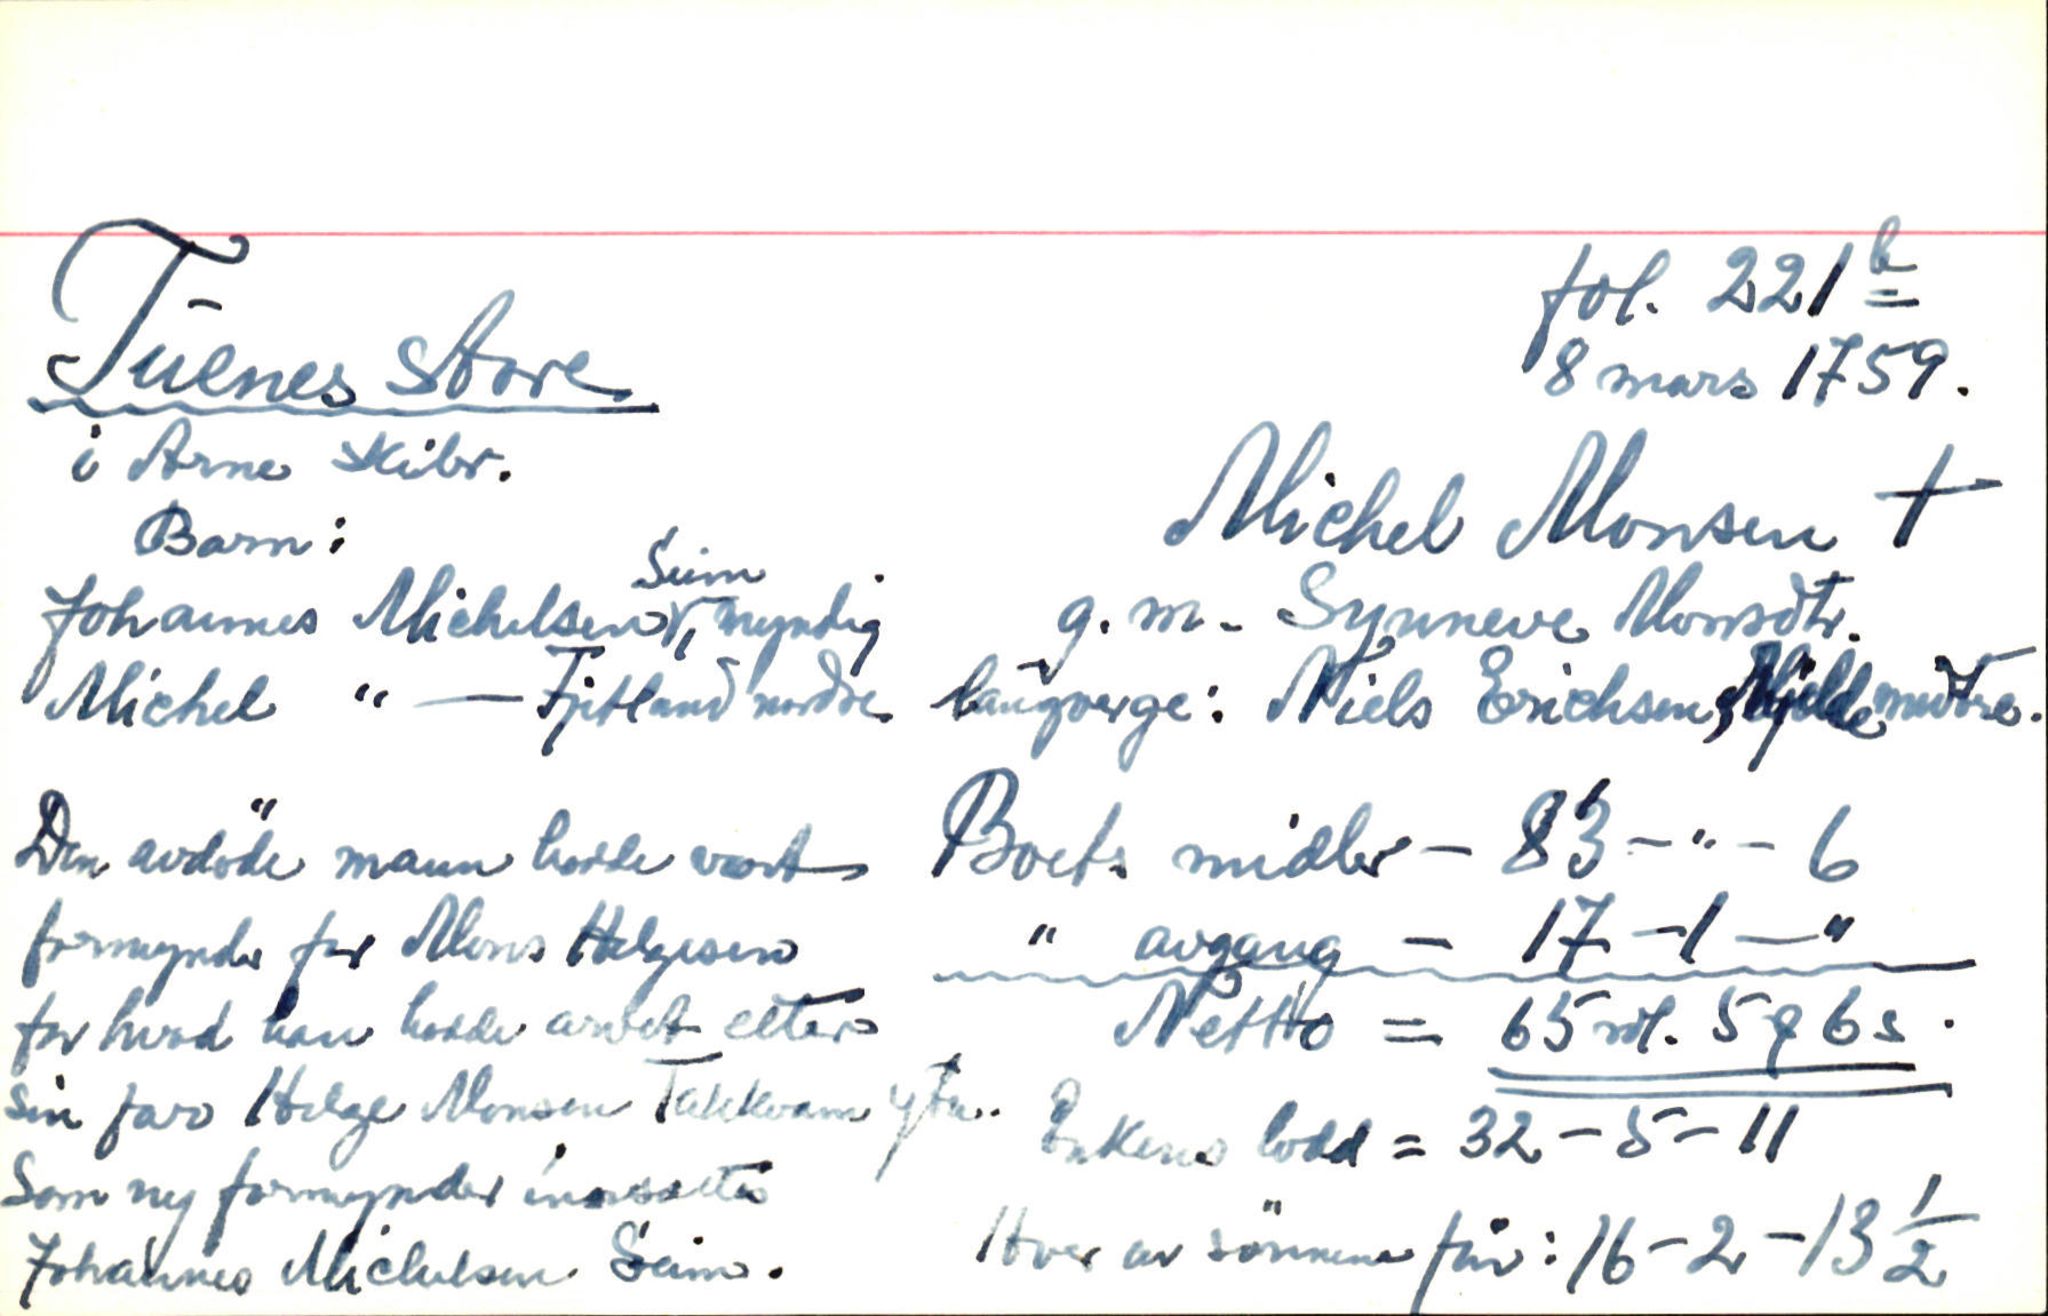 Tuenes store
i Arne skibr.
Barn:
Johannes Michelsen Seim, myndig
Michel " — Fjetland nordre.
Den avdöde mann hadde vært
formynder for Mons Helgesen
for hvad han hadde arvet etter
sin far Helge Monsen Takkvam ytre.
Som ny formynder innsættes
Johannes Michelsen Seim.
fol. 221 b
8 mars 1759.
Michel Monsen †
g. m. Synneve Monsdtr.
laugverge: Niels Erichsen, Mjelde midtre.
Boets midler – 83 – " – 6
" avgang – 17 – 1 – "
Netto = 65 rdl. 5 q 6 s.
Enkens lodd = 32 – 5 – 11
Hver av sönnene får: 16 – 2 – 13 1/2